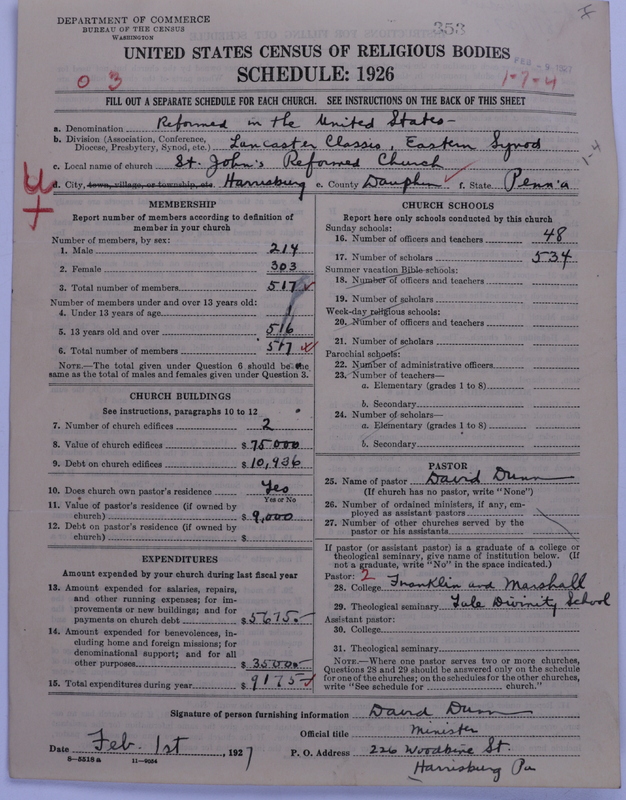 DEPARTMENT OF COMMERCE
BUREAU OF THE CENSUS
WASHINGTON
353
UNITED STATES CENSUS OF RELIGIOUS BODIES
SCHEDULE: 1926
0 3
1-7-4
FILL OUT A SEPARATE SCHEDULE FOR EACH CHURCH. SEE INSTRUCTIONS ON THE BACK OF THIS SHEET
a. Denomination Reformed in the United States-
b. Division (Association, Conference, Diocese, Presbytery, Synod, etc.) Lancaster Classis, Eastern Synod
c. Local name of church St. John's Reformed Church
1-4
d. City, town, village, or township, etc. Harrisburg e. County Dauphin f. State Penn'a
MEMBERSHIP
Report number of members according to definition of
member in your church
Number of members, by sex:
1. Male 214
2. Female 303
3. Total number of members 517
Number of members under and over 13 years old:
4. Under 13 years of age 1
5. 13 years old and over 516
6. Total number of members 517
NOTE.—The total given under Question 6 should be the
same as the total of males and females given under Question 3.
CHURCH BUILDINGS
See instructions, paragraphs 10 to 12
7. Number of church edifices 2
8. Value of church edifices $75000
9. Debt on church edifices $10,936
10. Does church own pastor's residence Yes
Yes or No
11. Value of pastor's residence (if owned by
church) $9,000
12. Debt on pastor's residence (if owned by
church) $
EXPENDITURES
Amount expended by your church during last fiscal year
13. Amount expended for salaries, repairs,
and other running expenses; for im-
provements or new buildings; and for
payments on church debt $5675.
14. Amount expended for benevolences, in-
cluding home and foreign missions; for
denominational support; and for all
other purposes $3500.
15. Total expenditures during year $9175
CHURCH SCHOOLS
Report here only schools conducted by this church
Sunday schools:
16. Number of officers and teachers 48
17. Number of scholars 534
Summer vacation Bible schools:
18. Number of officers and teachers
19. Number of scholars
Week-day religious schools:
20. Number of officers and teachers
21. Number of scholars
Parochial schools:
22. Number of administrative officers
23. Number of teachers—
a. Elementary (grades 1 to 8)
b. Secondary
24. Number of scholars—
a. Elementary (grades 1 to 8)
b. Secondary
PASTOR
25. Name of pastor David Dunn
(If church has no pastor, write "None")
26. Number of ordained ministers, if any, em-
ployed as assistant pastors
27. Number of other churches served by the
pastor or his assistants
If pastor (or assistant pastor) is a graduate of a college or
theological seminary, give name of institution below. (If
not a graduate, write "No" in the space indicated.)
Pastor: 2
28. College Franklin and Marshall
29. Theological seminary Yale Divinity School
Assistant pastor:
30. College
31. Theological seminary
NOTE.—Where one pastor serves two or more churches,
Questions 28 and 29 should be answered only on the schedule
for one of the churches; on the schedules for the other churches,
write "See schedule for church."
Signature of person furnishing information David Dunn
Official title Minister
Date Feb. 1st, 1927
P. O. Address 226 Woodbine St.
Harrisburg Pa
8—5518a 11—9054